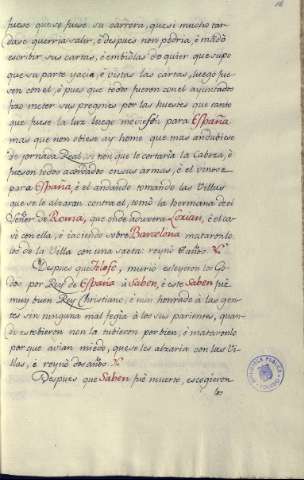 fuese que se fuese su carrera, que si mucho tar-
dase querria salir, è despues non podria, è mãdò
escribir sus cartas, è embiòlas de quien que supo
que su parte yacia, è vistas las cartas, luego fue-
sen con el, è pues que todo fueron con el ayuntados
fizo meter sus pregones por las huestes que tanto
que fuese la luz luego moviesen para España
mas que non obiese ay home que mas andubiese
de jornada Real, si non que le cortaria la Cabeza, è
fueron todos acordados en sus armas, è el vinose
para España, è el andando tomando las Villas
que se le alzaran contra el, tomò la hermana del
Señor de Roma, que onde aduxera, è ca-
sò con ella, è iaciendo sobre Barcelona mataronlo
los de la Villa con una saeta: reynò años.
Despues que, muriò esleyeron los Go-
dos por Rey de España à Saben, è este Saben fuè
muy buen Rey Christiano, è mui honrado à las gen-
tes sin ninguna mal fecia à los sus parientes, quan-
do esto vieron non la tubieron por bien, è mataronlo
porque avian miedo, que se les alzaria con las Vi-
llas, è reynò dos años.
Despues que Saben fuè muerto, escogieron
los